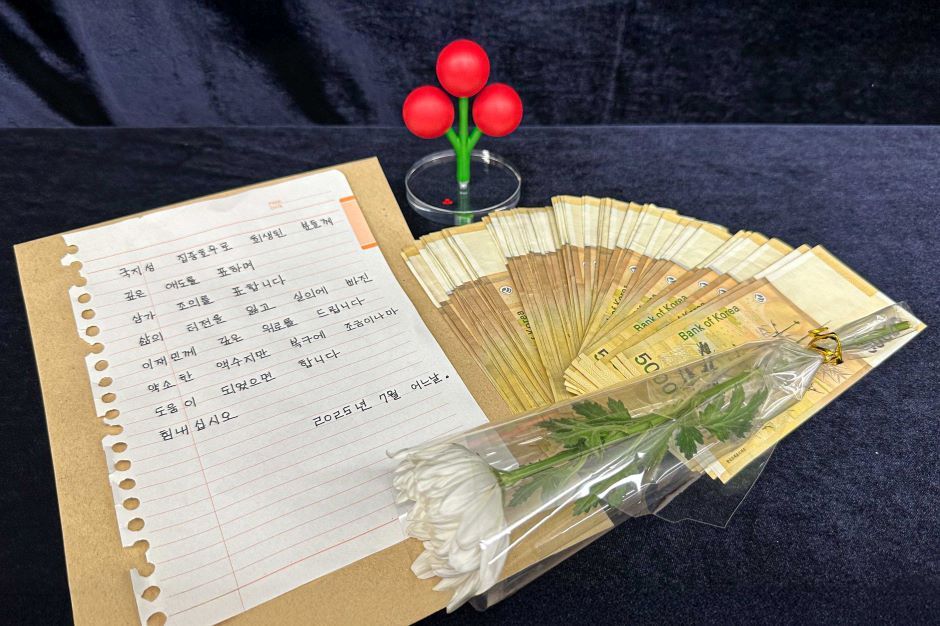 국지성 집중호우로 희생된 분들께
깊은 애도를 표하며
삼가 조의를 표합니다
삶의 터전을 잃고 실의에 빠진
이재민께 깊은 위로를 드립니다
약소한 액수지만 복구에 조금이나마
도움이 되었으면 합니다
힘내십시오 2025년 7월 어느날.
Bank of Korea
Bank of Korea
Bank of Korea